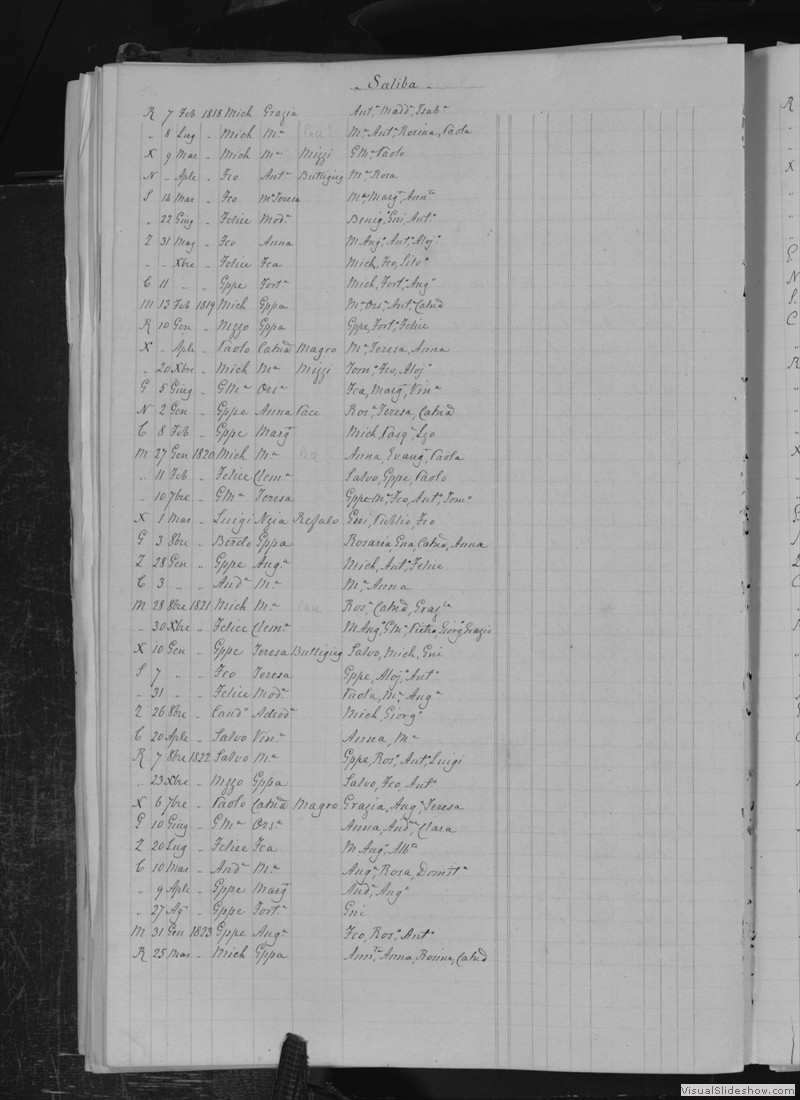 Saliba
R 7 Feb 1818 Mich Grazia Ant.ª Madd.ª Isab.ª
„ 8 Lug „ Mich M.ª M.ª Ant.ª Rosina, Paola
X 9 Mar „ Mich M.ª Mizzi G M.ª Paolo
N „ Aple „ Fco Ant.ª Buttigieg M.ª Rosa
S 14 Mar „ Fco Mª Teresa M.ª Marg.ª Ann.ta
„ 22 Giug „ Felice Mod.ª Benig.ª Gni, Ant.º
Z 31 Mag „ Fco Anna M Ang.ª Ant.º Aloj.ª
„ „ Xbre „ Felice Fca Mich, Fco,
C 11 „ „ Gppe Fort.ª Mich, Fort.ª Ang.º
M 13 Feb 1819 Mich Gppa M.ª Ors.ª Ant.ª Catnd
R 10 Gen „ Nzzo Gppa Gppe, Fort.º Felice
X „ Aple „ Paolo Catnd Magro M.ª Teresa, Anna
„ 20 Xbre „ Mich M.ª Mizzi Tom.º Fco, Aloj.º
G 5 Giug „ G M.ª Ors.ª Fca, Marg.ª Vin.ª
N 2 Gen „ Gppe Anna Pace Ros.ª Teresa, Catnd
C 8 Feb „ Gppe Marg.ª Mich, Pasq.º Lzo
M 27 Gen 1820 Mich M.ª Anna Evang.ª Paola
„ 11 Feb „ Felice Clem.ª Salvo, Gppe, Paolo
„ 10 7bre „ G M.ª Teresa Gppe M.ª Fco, Ant.º Tom.º
X 1 Mar „ Luigi Nzia Refalo Gni, Publio, Fco
G 3 8bre „ Bordo Gppa Rosaria, Gna, Catnd, Anna
Z 28 Gen „ Gppe Ang.ª Mich, Ant.º Felice
C 3 „ „ And.ª M.ª M.ª Anna
M 28 8bre 1821 Mich M.ª Ros.ª Catnd, Graz.la
„ 30 Xbre „ Felice Clem.ª M Ang.º G M.ª Pietro, Giorg.º Grazio
X 10 Gen „ Gppe Teresa Buttigieg Salvo, Mich, Gni
S 7 „ „ Fco Teresa Gppe, Aloj.º Ant.º
„ 31 „ „ Felice Mod.ª Paola, M.ª Ang.ª
Z 26 8bre „ Cand.º Adeod.ª Mich, Giorg.º
C 20 Aple „ Salvo Vin.ª Anna, M.ª
R 7 8bre 1822 Salvo M.ª Gppe, Ros.º Ant.º Luigi
„ 23 Xbre „ Nzzo Gppa Salvo, Fco, Ant.º
X 6 7bre „ Paolo Catnd Magro Grazia, Ang.ª Teresa
G 10 Giug „ G M.ª Ors.ª Anna, And.na Clara
Z 20 Lug „ Felice Fca M Ang.º Alb.to
C 10 Mar „ And.ª M.ª Ang.ª Rosa, Domit.ª
„ 9 Aple „ Gppe Marg.ª And.ª Ang.º
„ 27 Ag.º „ Gppe Fort.ª Gni
M 31 Gen 1823 Gppe Ang.ª Fco, Ros.º Ant.º
R 25 Mar „ Mich Gppa Ann.ta Anna, Rosina, Catnd
VisualSlideshow.com